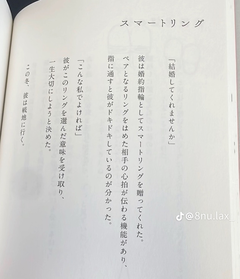 スマートリング
「結婚してくれませんか」
彼は婚約指輪としてスマートリングを贈ってくれた。
ペアとなるリングをはめた相手の心拍が伝わる機能があり、
指に通すと彼がドキドキしているのが分かった。
「こんな私でよければ」
彼がこのリングを選んだ意味を受け取り、
一生大切にしようと決めた。
この冬、彼は戦地に行く。
@8nu.fax